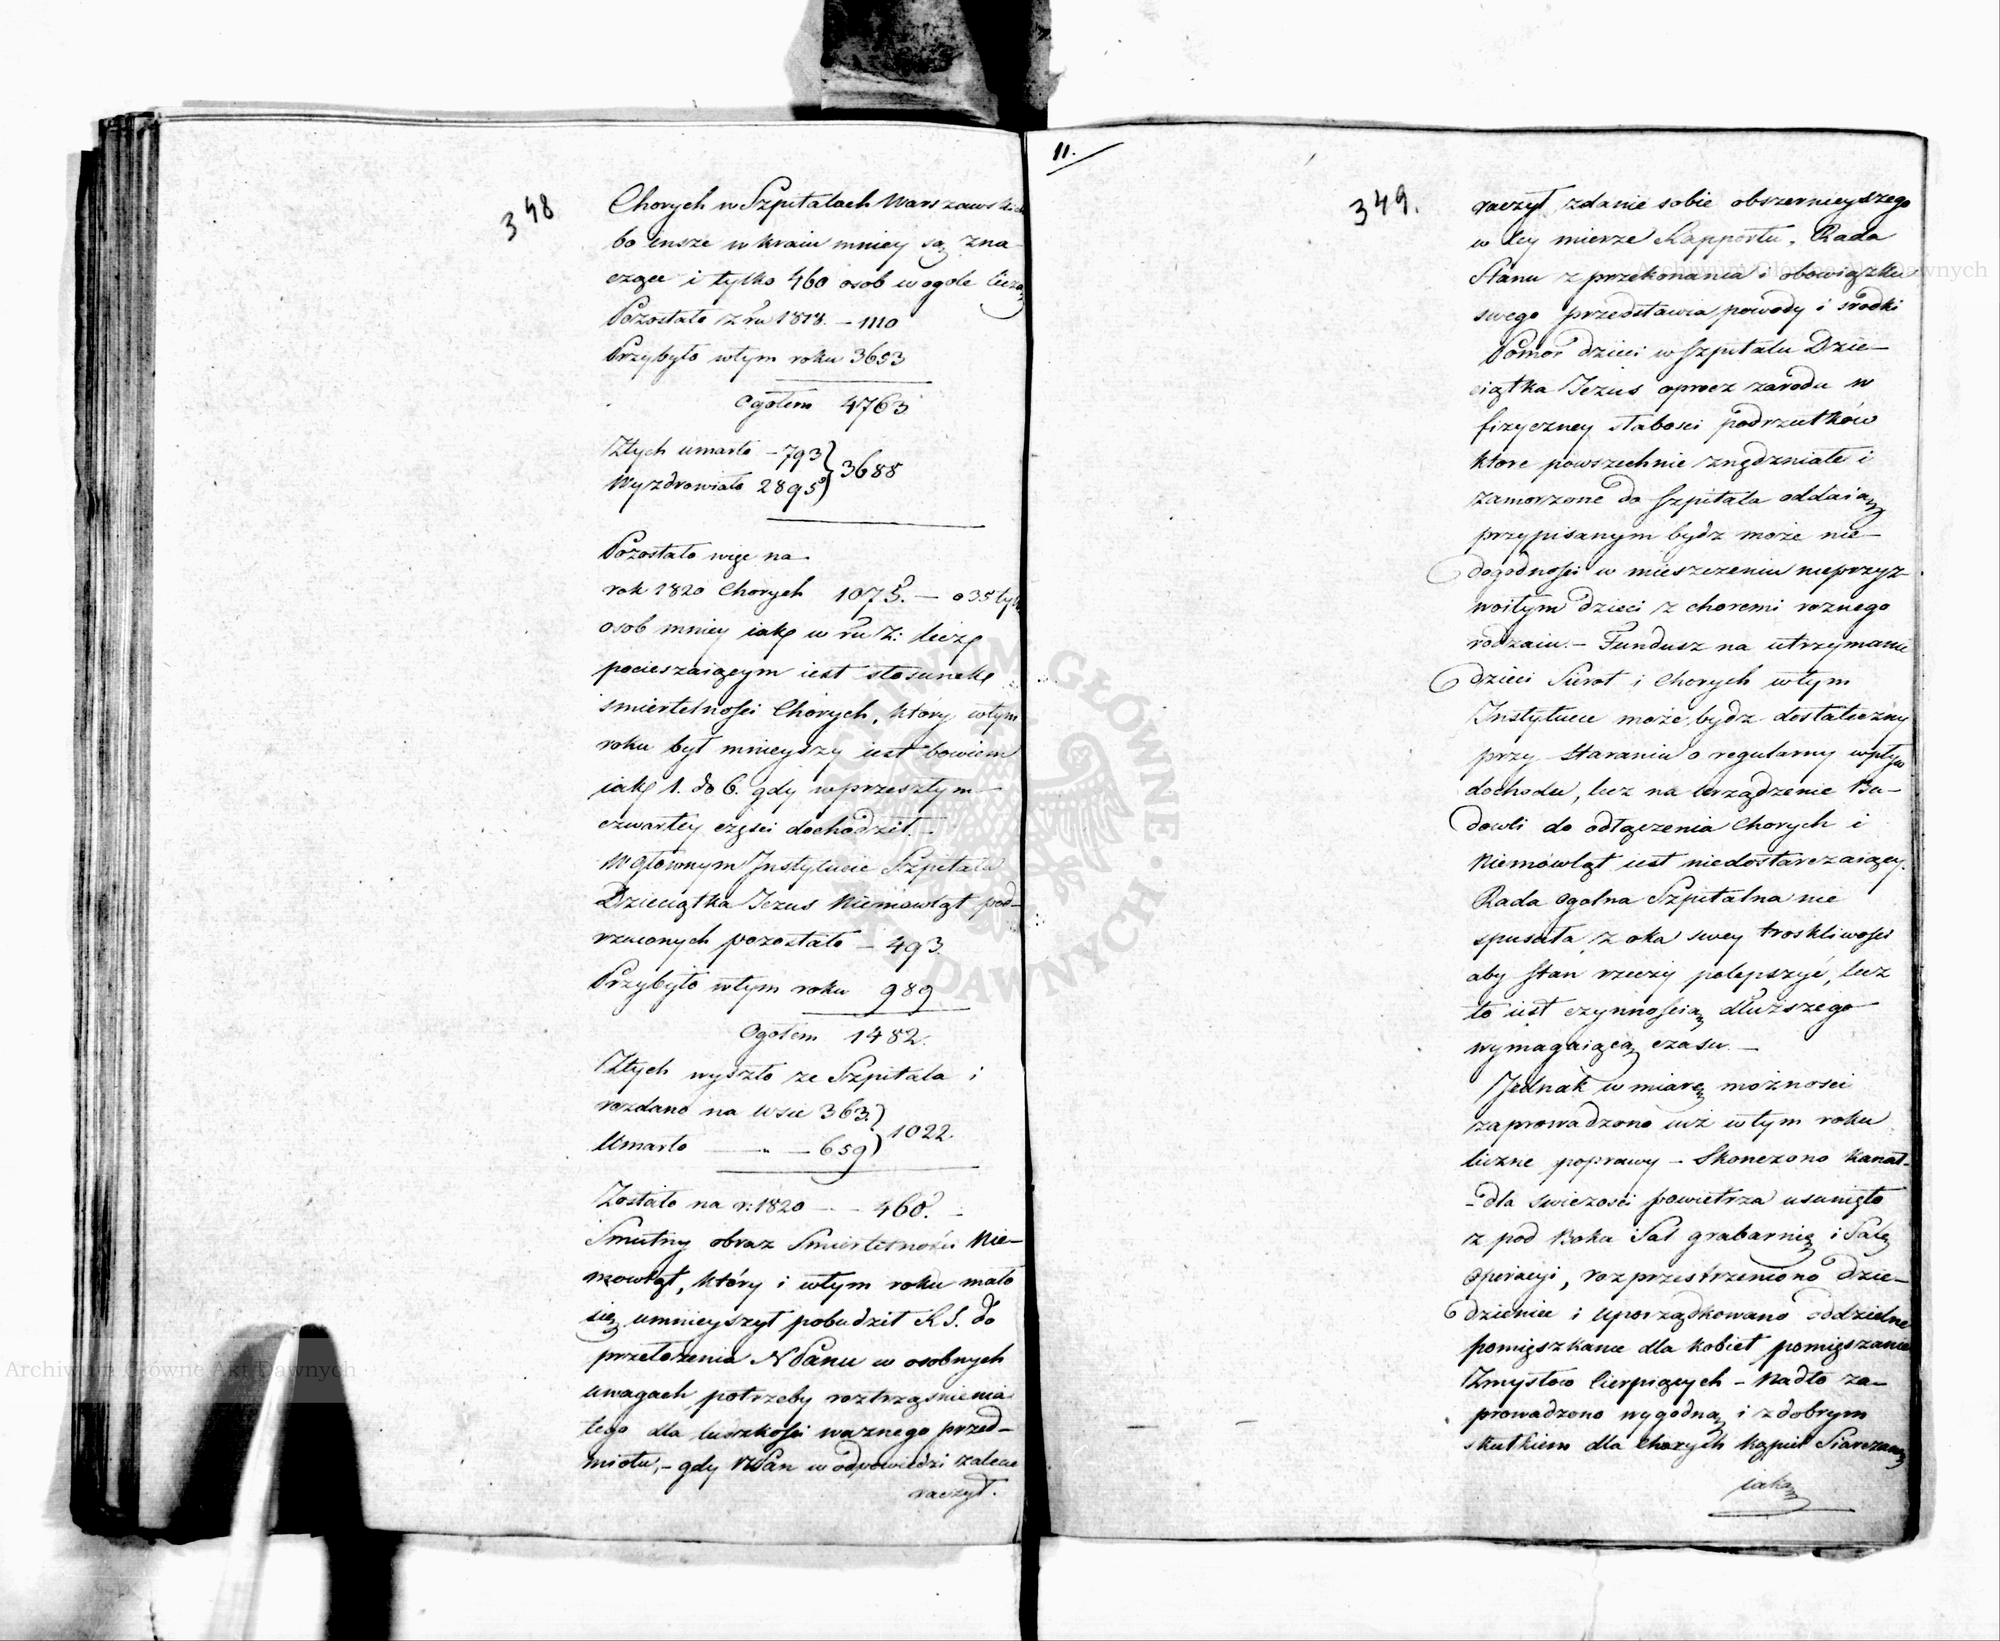 348
Chorych w Szpitalach Warszawskich
bo insze w kraiu mniey są zna
czące i tylko 460 osob w ogole liczą
Pozostało z ru 1818. – 1110
Przybyło w tym roku 3653
Ogółem 4763
Z tych umarło – 793 } 3688
Wyzdrowiało 2895
Pozostało więc na
rok 1820 Chorych 1075. – o 35 tych
osob mniey iak w ru z: licz
pocieszaiącym iest stosunek
śmiertelności Chorych, który w tym
roku był mnieyszy iest bowiem
iak 1. do 6. gdy w przeszłym
czwartey części dochodził. –
W głównym Instytucie Szpitala
Dzieciątka Jezus Niemowląt pod-
rzuconych pozostało – 493.
Przybyło w tym roku 989
Ogółem 1482.
Z tych wyszło ze Szpitala i
rozdano na wsie 363. } 1022.
Umarło – „ – 659
Zostało na r. 1820 – – 460. –
Smutny obraz Smiertelności Nie-
mowląt, który i w tym roku mało
się umnieyszył pobudził R S. do
przełożenia N Panu w osobnych
uwagach potrzeby roztrząśnienia
tego dla ludzkości ważnego przed-
miotu, – gdy NPan w odpowiedzi zalecić
raczył.
11.
349.
raczył zdanie sobie obszernieyszego
w tey mierze Rapportu. Rada
Stanu z przekonania i obowiązku
swego przedstawia powody i srodki
Pomor dzieci w Szpitalu Dzie-
ciątka Jezus oprocz zarodu w
fizyczney słabosci podrzutków
ktore powszechnie znędzniałe i
zamorzone do Szpitala oddaią
przypisanym bydz może nie-
dogodności w mieszczeniu nieprzyz
woitym dzieci z choremi roznego
rodzaiu. – Fundusz na utrzymanie
dzieci Sierot i Chorych w tym
Instytucie może bydz dostateczny
przy staraniu o regularny wpływ
dochodu, lecz na urządzenie Bu-
dowli do odłączenia Chorych i
Niemowląt iest niedostarczaiący.
Rada Ogolna Szpitalna nie
spuszcza z oka swey troskliwości
aby stan rzeczy polepszyć, lecz
to iest czynnością dłuższego
wymagaiącą czasu. –
Jednak w miarę możnosci
zaprowadzono iuż w tym roku
liczne poprawy – Skonczono Kanał
– dla swieżości powietrza usunięto
z pod Boku Sal grabarnię i Salę
Operacyi, rozprzestrzeniono dzie-
dzinice i uporządkowano oddzielne
pomięszkanie dla kobiet pomięszanie
Zmysłow Cierpiących – Nadto za-
prowadzono wygodną i z dobrym
skutkiem dla Chorych kąpiel Siarczaną
iaką
Archiwum Główne Akt Dawnych
Archiwum Główne Akt Dawnych
ARCHIWUM GŁÓWNE AKT DAWNYCH